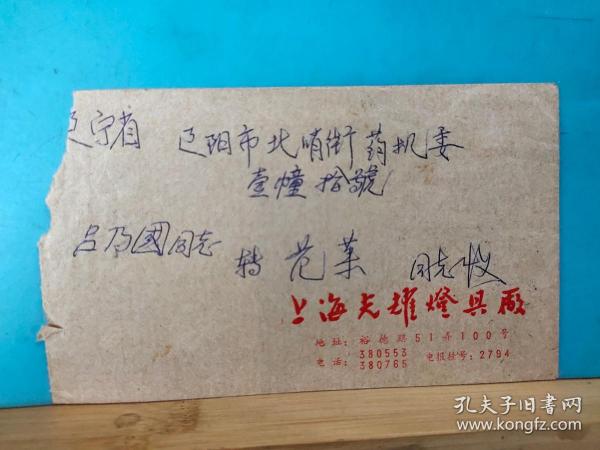 辽宁省 辽阳市北哨街药机委
壹幢拾號
吕乃國同志 转 范 同志收
上海光耀燈具厰
地址：裕德路51弄100号
电话：380553
380765
电报挂号：2794
孔夫子旧书网
www.kongfz.com